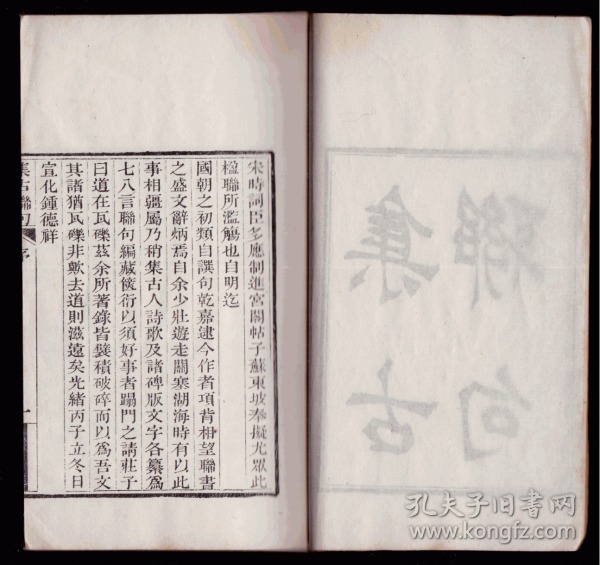 宋時詞臣多應制進宮閣帖子蘇東坡奉擬尤眾此
楹聯所濫觴也自明迄
國朝之初類自譔句乾嘉逮今作者項背相望聯書
之盛文辭炳焉自余少壯遊走關塞湖海時有以此
事相疆屬乃稍集古人詩歌及諸碑版文字各纂為
七八言聯句編藏篋衍以須好事者踢門之請莊子
曰道在瓦礫茲余所著錄皆襞積破碎而以為吾文
其諸猶瓦礫非歟去道則滋遠矣光緒丙子立冬日
宣化鍾德祥
集古聯句 序 一
集古
聯句
孔夫子旧书网
www.kongfz.com